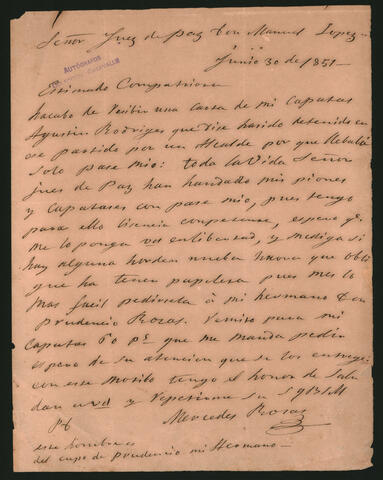 Señor Juez de paz Don Manuel Lopez
Junio 30 de 1851-
AUTÓGRAFOS
Estimado Compatriota
hacabo de Resibir una carta de mi capatas
Agustin Rodriges que dise hasido detenido en
ese partido por un Alcalde por que Rebalià
solo pase mio: toda la Vida Señor
jues de Paz han handado mis piones
y capatases con pase mio, pues tengo
para ello lisencia competense, espero q.e
me lo ponga vd enlibertad, y mediga si
hay alguna horden nueba que obli
que ha tener papeleta pues mes lo
mas facil pedirsela à mi hermano Don
prudencio Rosas. Remito para mi
capatas 60 p.s que me manda pedir
espero de su atencion que se los entregu
con este motibo tengo el honor de Salu
dar avd y Repetirme su S Q B S M
Mercedes Rosas
este hombre es
del cupo de prudencio mi Hermano-